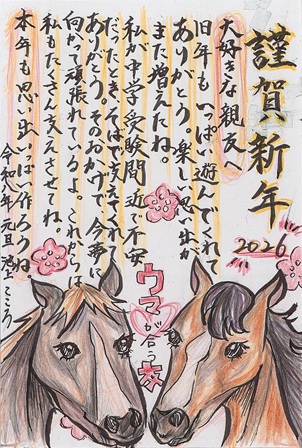 謹賀新年
2026
大好きな親友へ
旧年もいっぱい遊んでくれて
ありがとう。楽しい思い出が
また増えたね。
私が中学受験間近で不安
だったとき、そばで支えてくれて
ありがとう。そのおかげで、今夢に
向かって頑張れているよ。これからは
私もたくさん支えさせてね。
本年も思い出いっぱい作ろうね
令和八年 元旦 池上こころ
ウマが合う友